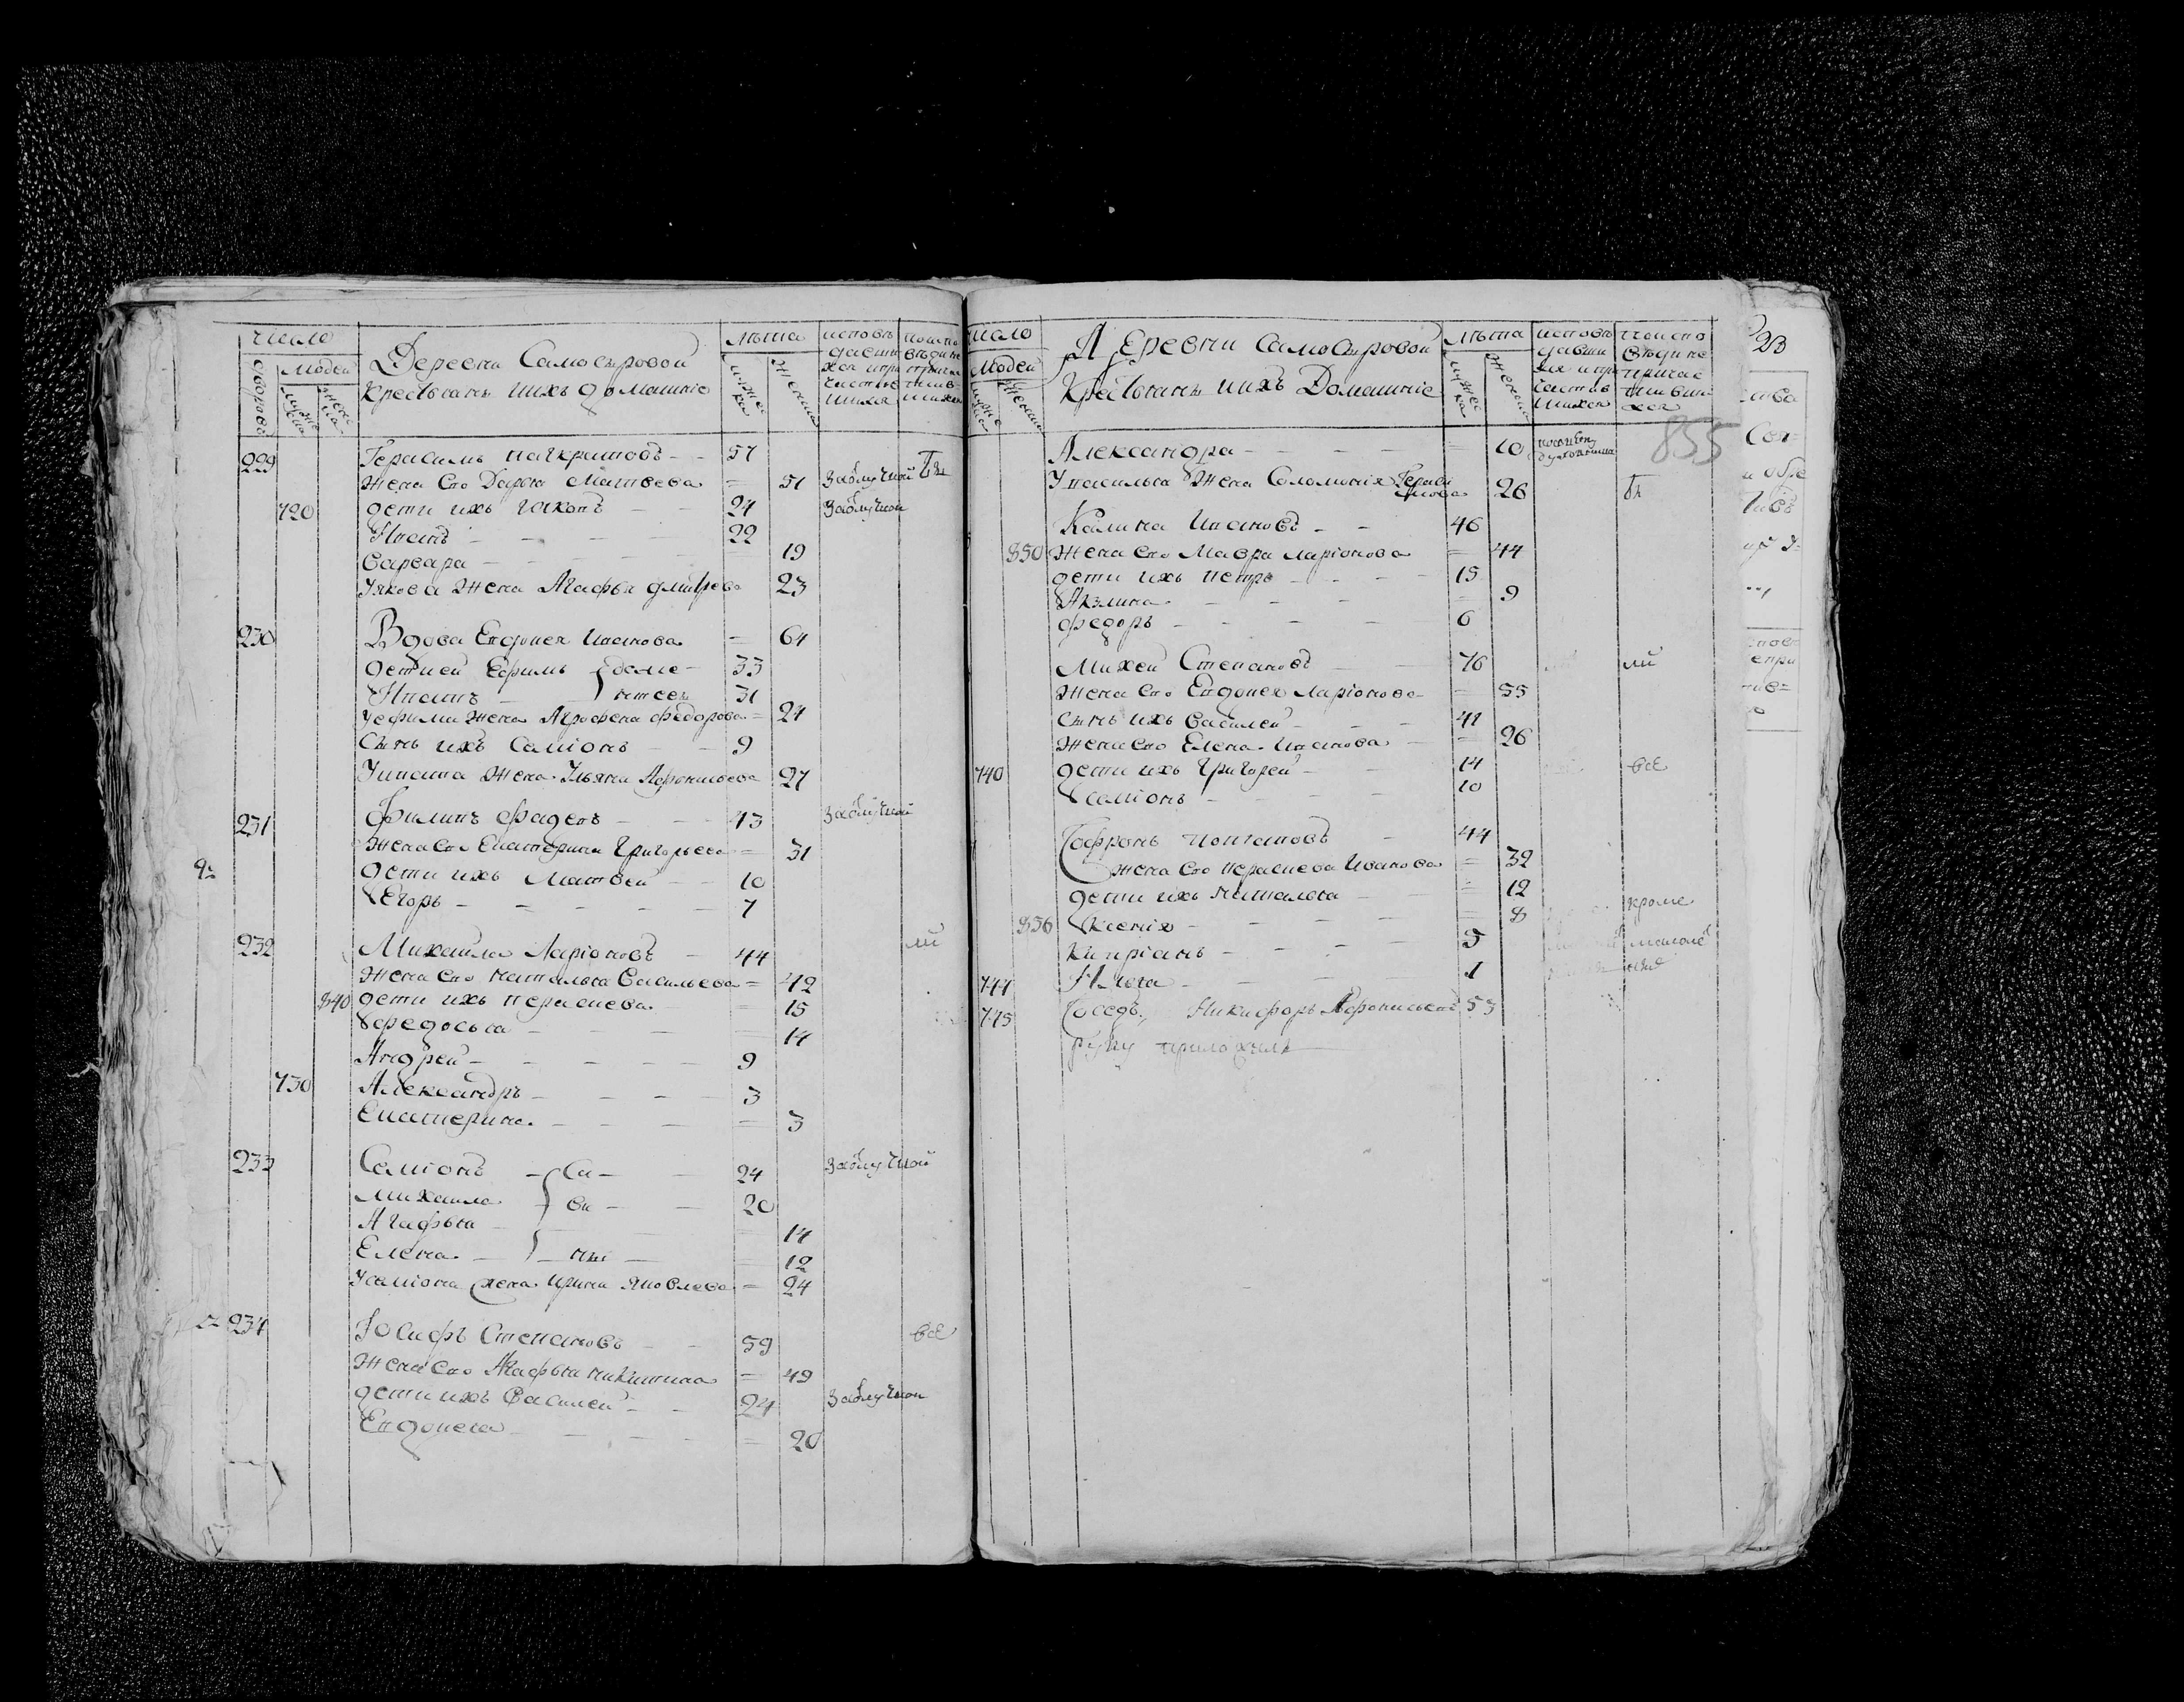 число
дворовъ
людей
мужеска
женска
Деревни Самосыровой
Крестьяне и ихъ домашние
лѣта
мужеска
женска
229 Герасимъ Панкратовъ 57
жена его Дарья Матвеева = 51 заблучной
720 дети ихъ Иаковъ 24 заблучной
Ипатъ 22
Варвара 19
У Якова жена Агафья Дмитрева 23
230 Вдова Евдокея Иванова = 64
дети ей Ефимъ 33
Ипатъ 31
У Ефима жена Аграфена Федорова = 24
Сынъ ихъ Самионъ 9
У Ипата жена Ульяна Афонасьева 27
231 Филипъ Фадеевъ 43 заблучной
жена его Екатерина Григорьева = 31
дети ихъ Матвей 10
Егоръ 7
232 Михайла Ларионовъ 44 ли
жена его Наталья Васильева = 42
840 дети ихъ Параскева 15
Федосья 14
Андрей 9
730 Александръ 3
Екатерина = 3
233 Самионъ 24 заблучной
Михайла 20
Агафья 14
Елена 12
У Самиона жена Ирина Яковлева = 24
234 Иосифъ Степановъ 59 всѣ
жена его Агафья Никитина = 49
дети ихъ Василей 24 заблучной
Евдокея = 20
число
людей
женска
Деревни Самосыровой
Крестьяне и ихъ Домашние
лѣта
мужеска
женска
23
855
Александра = 10
У Василья жена Соломония Герасимова 26
Калина Ивановъ 46
850 жена его Мавра Ларионова = 44
дети ихъ Петръ 15
Акилина = 9
Федоръ 6
Михей Степановъ 76 ли
жена его Евдокея Ларионова = 55
Сынъ ихъ Василей 41
жена его Елена Иванова = 26
740 дети ихъ Григорей 14 всѣ
Самионъ 10
Сафронъ 44
жена его Параскева Иванова = 32
дети ихъ Наталья = 12
856 Ксения = 8 кроме
Киприанъ 5
744 Илья 1
745 Соседъ Никифоръ Афонасьевъ 53
руку приложилъ